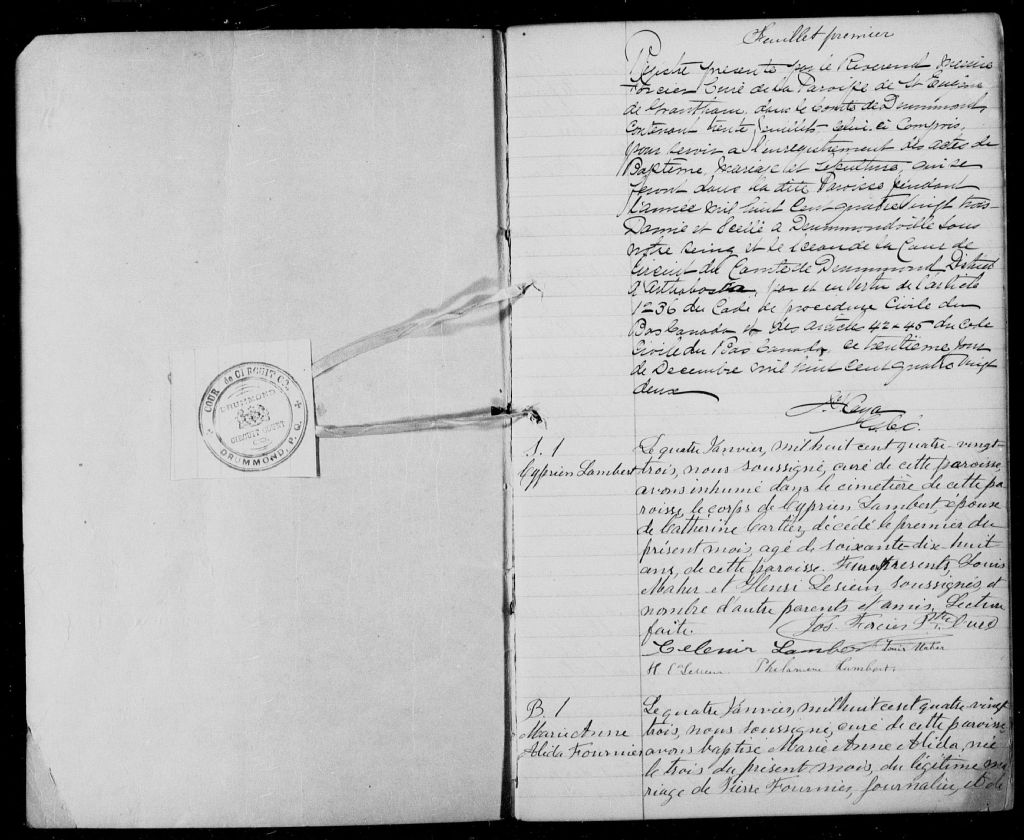 COUR de CIRCUIT CO.
DRUMMOND
CIRCUIT COURT
DRUMMOND, P.Q.
Feuillet premier
Registre présenté par le Reverend Messire
Forcier Curé de la Paroisse de St
de Grantham, dans le Comté de Drummond,
Contenant trente feuillets celui-ci compris,
pour servir à l'enregistrement des actes de
Baptême, Mariage et sépulture, qui se
feront dans la dite Paroisse pendant
l'année mil huit cent quatre vingt trois
et scellé à Drummondville sous
notre seing et le sceau de la Cour de
Circuit du Comté de Drummond District
d'Arthabaska, par et en vertu de l'article
1236 du Code de procedure Civile du
Bas Canada et des articles 42 & 45 du Code
Civile du Bas Canada, ce jour
de Decembre mil huit cent quatre vingt
deux
S. 1
Cyprien Lambert
Le quatre Janvier, mil huit cent quatre-vingt-
trois, nous soussigné, curé de cette paroisse,
avons inhumé dans le cimetière de cette pa
roisse, le corps de Cyprien Lambert, épouse
de Catherine Cartier, décédé le premier du
présent mois, agé de soixante-dix-huit
ans, de cette paroisse. Furent présents, Louis
Maher et Henri Lesieur, soussignés et
nombre d'autre parents et amis. Lecture
faite. Jos. Forcier Ptre Curé
Celenir Lambert Louis Maher
H. Lesieur Philomene Lambert
B. 1
Marie Anne
Alida Fournier
Le quatre Janvier, mil huit cent quatre-vingt
trois, nous soussigné, curé de cette paroisse
avons baptisé Marie Anne Alida, née
le trois du présent mois, du légitime ma
riage de Pierre Fournier, journalier, et de